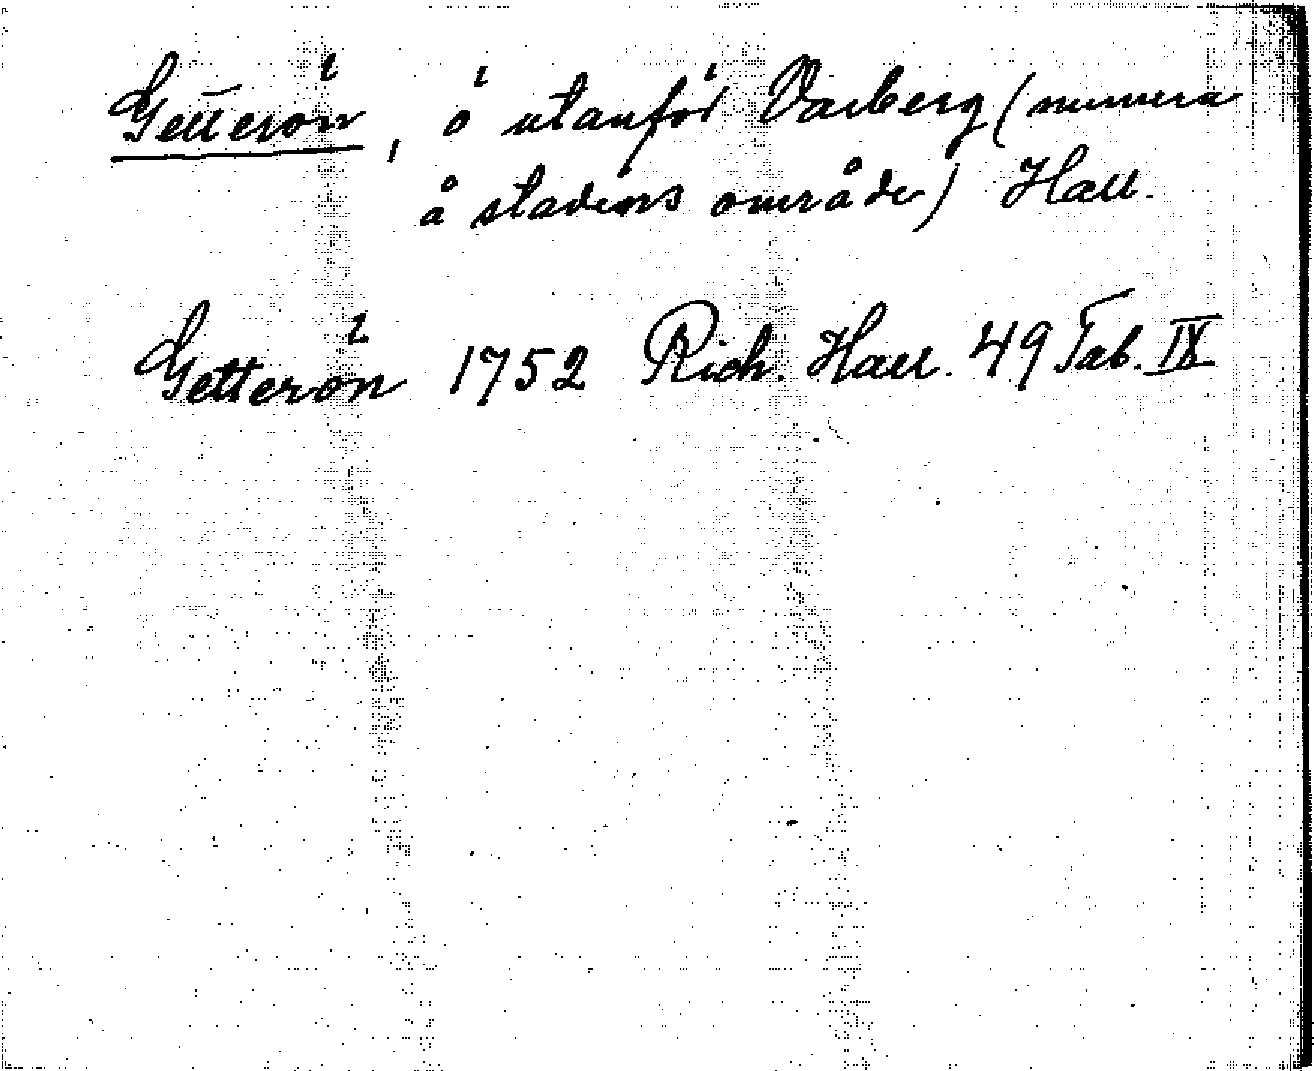 Getterön, ö utanför Varberg (numera
å stadens område) Hall.
Getterön 1752 Rich. Hall. 49 Tab. IX